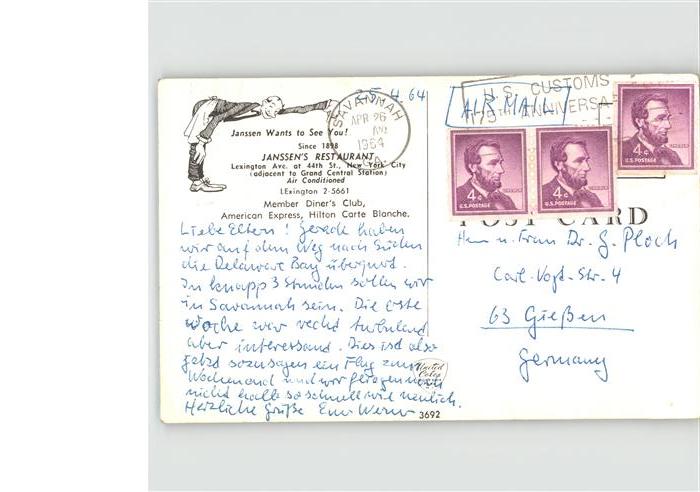 25.4.64
AIR MAIL
U.S. CUSTOMS
175TH ANNIVERSA
SAVANNAH
APR 26
AM
1964
GA.
Janssen Wants to See You!
Since 1898
JANSSEN'S RESTAURANT
Lexington Ave. at 44th St., New York City
(adjacent to Grand Central Station)
Air Conditioned
LExington 2-5661
Member Diner's Club,
American Express, Hilton Carte Blanche.
4¢
U.S. POSTAGE
4¢
U.S. POSTAGE
4¢
U.S. POSTAGE
POST CARD
Liebe Eltern! Gerade haben
wir auf dem Weg nach Süden
die Delaware Bay überquert.
In knapp 3 Stunden sollen wir
in Savannah sein. Die erste
Woche war recht turbulent
aber interessant. Dies ist also
jetzt sozusagen ein Flug zum
Wochenend und wir fliegen
nicht halb so schnell wie neulich.
Herzliche Grüße Euer Werner
Herrn u. Frau Dr. G. Ploch
Carl-Vogt-Str. 4
63 Gießen
Germany
United
3692